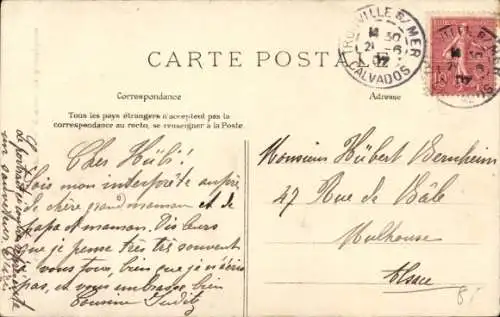 CARTE POSTALE
Correspondance
Adresse
Tous les pays étrangers n'acceptent pas la
correspondance au recto, se renseigner à la Poste
TROUVILLE S/MER
CALVADOS
Cher Hübi!
Sois mon interprète auprès
de chère grand maman et de
papa et maman. Dis leurs
que je pense très très souvent
vous tous, bien que je n'écris
pas, et vous embrasse bien
Cousine Judith
Monsieur Hübert Bernheim
47 Rue de Bâle
Mulhouse
Alsace